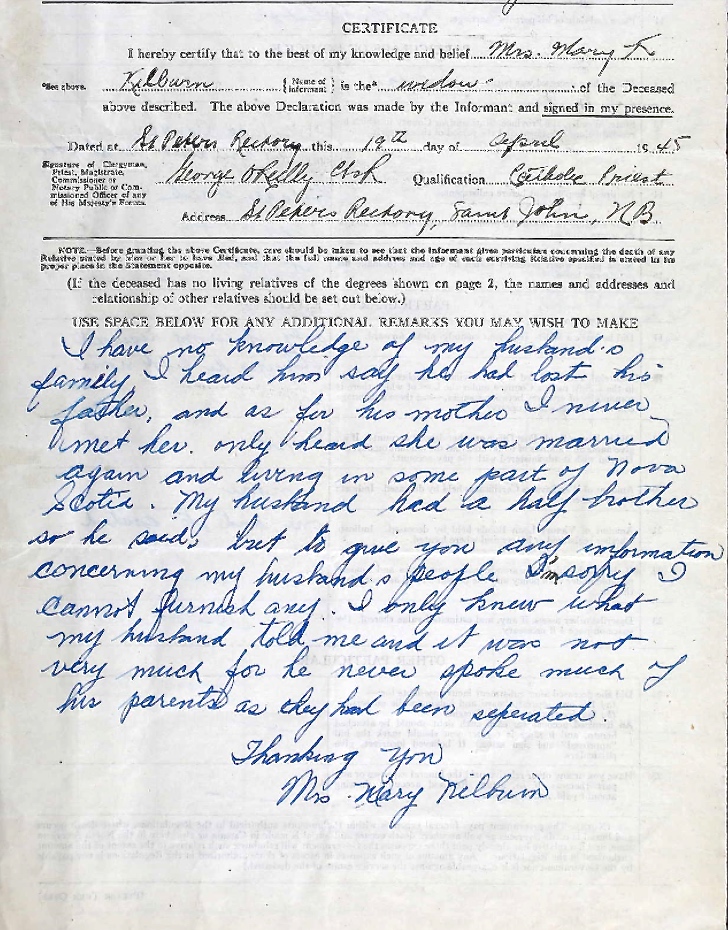 CERTIFICATE
I hereby certify that to the best of my knowledge and belief Mrs. Mary F.
*See above. Kilburn {Name of Informant} is the* widow of the Deceased
above described. The above Declaration was made by the Informant and signed in my presence.
Dated at St Peters Rectory this 19th day of April 1945
Signature of Clergyman, Priest, Magistrate, Commissioner or Notary Public or Commissioned Officer of any of His Majesty's Forces. George O'Reilly CSsR Qualification Catholic Priest
Address St Peters Rectory, Saint John, NB
NOTE.—Before granting the above Certificate, care should be taken to see that the Informant gives particulars concerning the death of any
Relative stated by him or her to have died, and that the full name and address and age of each surviving Relative specified is stated in its
proper place in the Statement opposite.
(If the deceased has no living relatives of the degrees shown on page 2, the names and addresses and
relationship of other relatives should be set out below.)
USE SPACE BELOW FOR ANY ADDITIONAL REMARKS YOU MAY WISH TO MAKE
I have no knowledge of my husband's
family, I heard him say he had lost his
father, and as for his mother I never
met her. only heard she was married
again and living in some part of Nova
Scotia. My husband had a half brother
so he said, but to give you any information
concerning my husband's people I'm sorry I
cannot furnish any. I only knew what
my husband told me and it was not
very much for he never spoke much of
his parents as they had been seperated.
Thanking You
Mrs Mary Kilburn